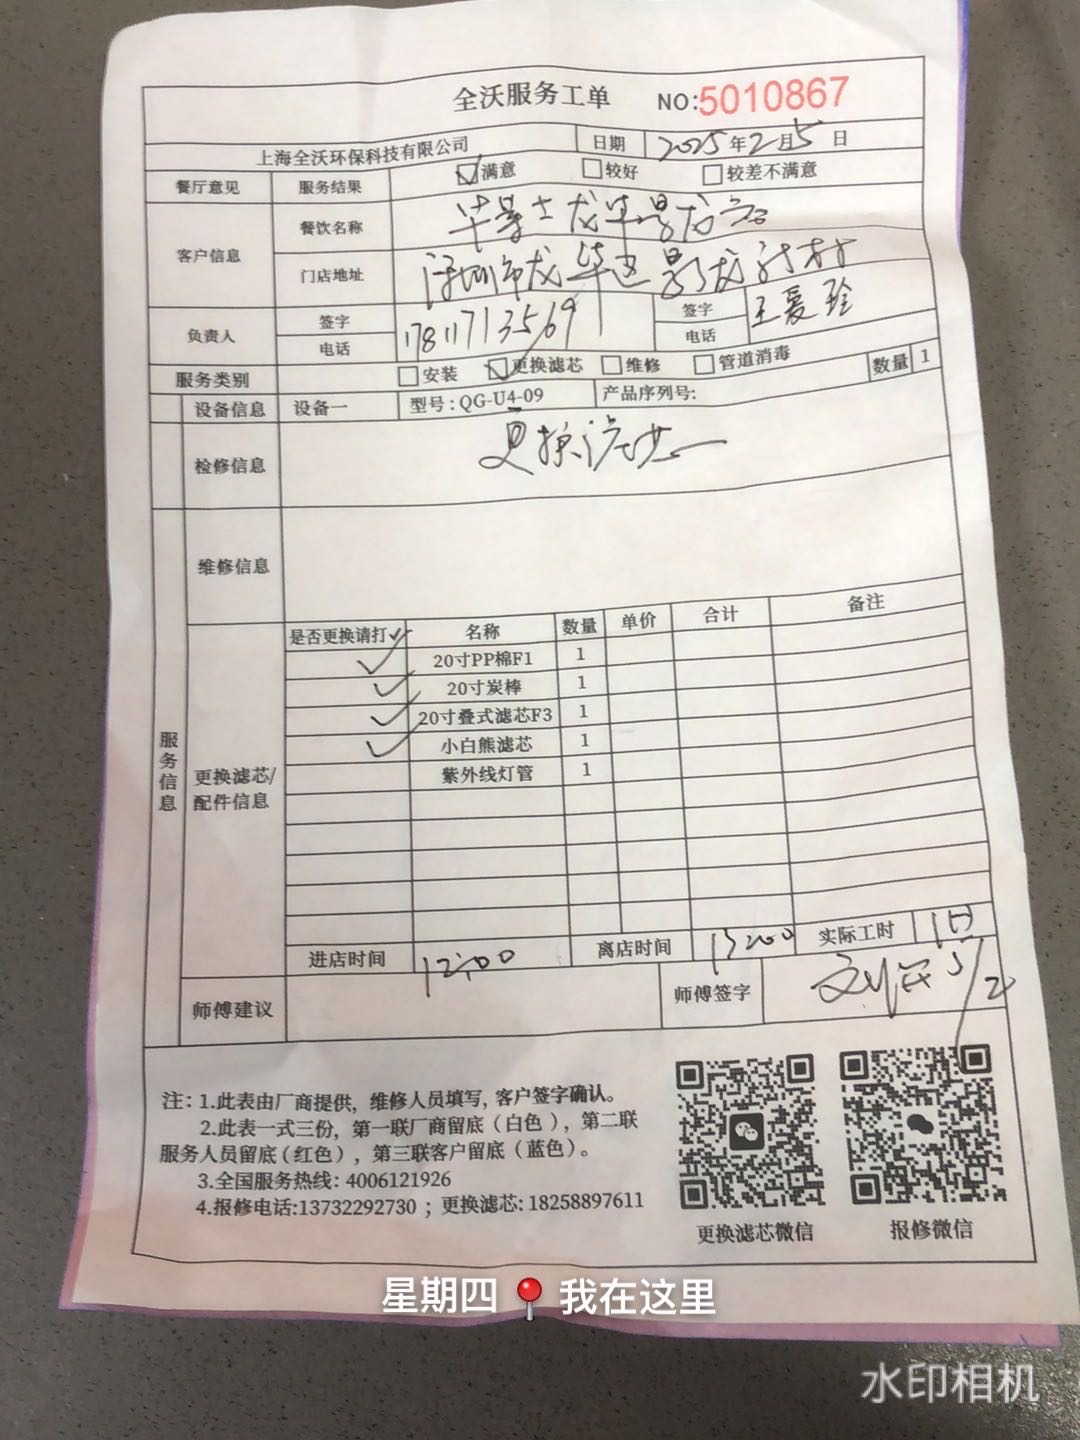 全沃服务工单 NO:5010867
上海全沃环保科技有限公司 日期 2025年2月5日
餐厅意见 服务结果 满意 较好 较差不满意
客户信息 餐饮名称
门店地址 深圳市龙华区景龙新村
负责人 签字 17811713569 签字 王爱玲
电话 电话
服务类别 安装 更换滤芯 维修 管道消毒 数量 1
设备信息 设备一 型号:QG-U4-09 产品序列号:
检修信息 更换滤芯
维修信息
服务信息
更换滤芯/配件信息
是否更换请打✓ 名称 数量 单价 合计 备注
✓ 20寸PP棉F1 1
✓ 20寸炭棒 1
✓ 20寸叠式滤芯F3 1
✓ 小白熊滤芯 1
紫外线灯管 1
进店时间 12:00 离店时间 13:00 实际工时
师傅建议 师傅签字 5/2
注: 1.此表由厂商提供, 维修人员填写, 客户签字确认。
2.此表一式三份, 第一联厂商留底(白色), 第二联
服务人员留底(红色), 第三联客户留底(蓝色)。
3.全国服务热线: 4006121926
4.报修电话:13732292730 ; 更换滤芯: 18258897611
更换滤芯微信 报修微信
星期四 📍 我在这里
水印相机